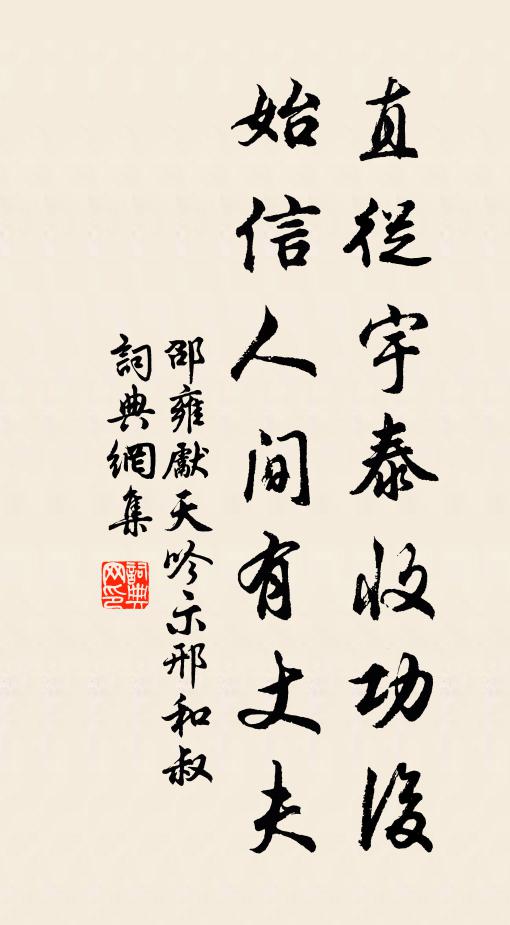 直從宇泰收功後
始信人間有丈夫
邵雍處天吟示邢和叔
詞典網集
詞典网印